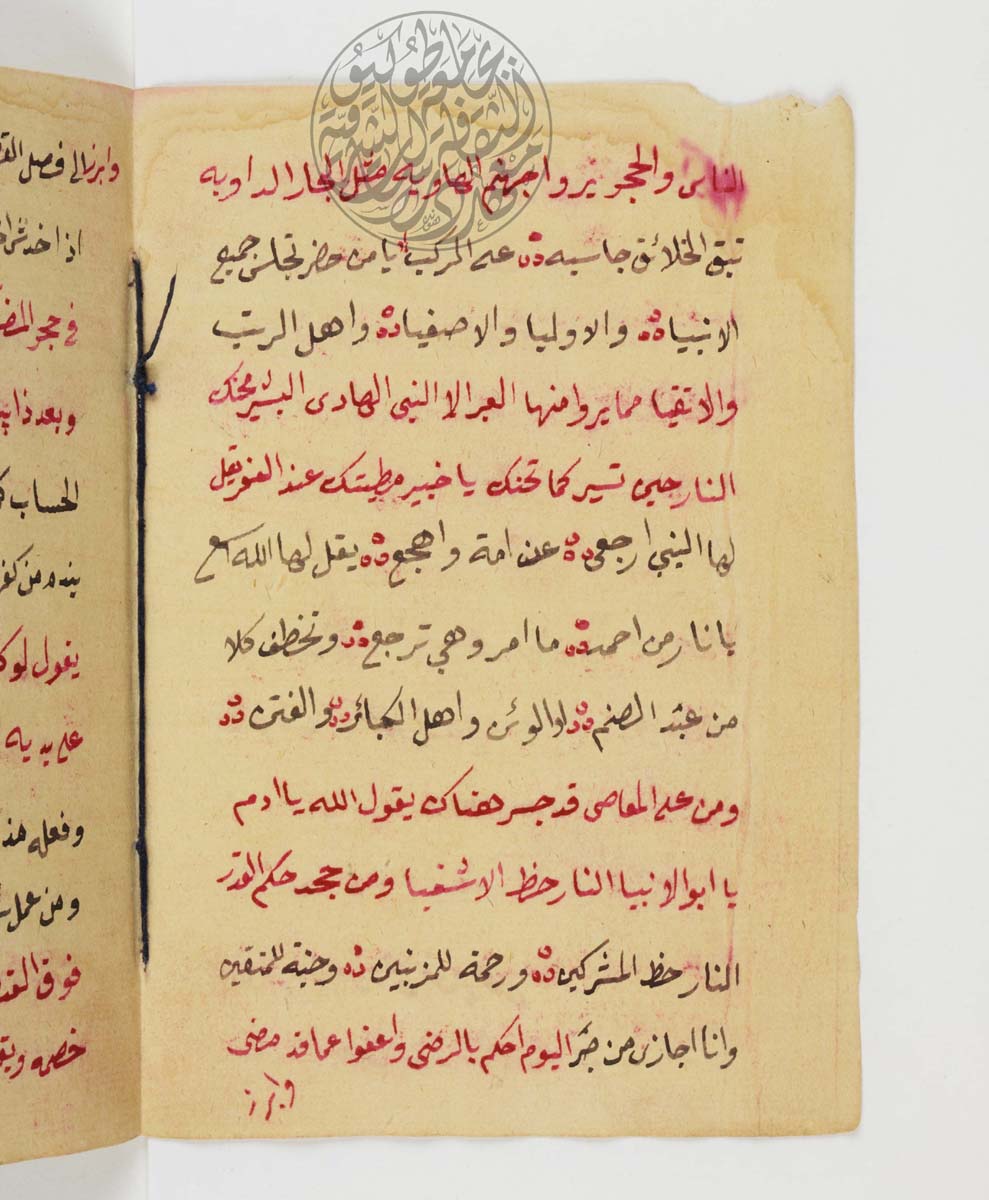 الناس والحجر يروا جهنم الهاويه مثل البحار الداويه
تبق الخلائق جاسيه على الركب يا من حضر تجلس جميع
الانبيا والاوليا والاصفيا واهل الرتب
والاتقيا مما يروا منها العبر الا النبي الهادى البشير محنك
النار حين تسير كما تحنك يا خبير مطيتك عند النفر يقل
لها النبي ارجعى عن امة واهجع يقل لها الله اسمع
يا نار من احمد ما امر وهي ترجع وتخطف كلا
من عبد الصنم او الوثن واهل الكبائر والفتن
ومن على المعاصى قد جسر هناك يقول الله يا ادم
يا ابو الانبيا النار حظ الاشقيا ومن جحد حكم القدر
النار حظ المشركين ورحمة للمزنبين وجنة للمتقين
وانا اجازى من اليوم احكم بالرضى واعفوا عما قد مضى
وابرز
وابرز الى فصل
اذا
في حجر
وبعد ذا
الحساب
ينده من كفر
يقول لو
على يديه
وفعله هذ
ومن عمل
فوق
خصمه